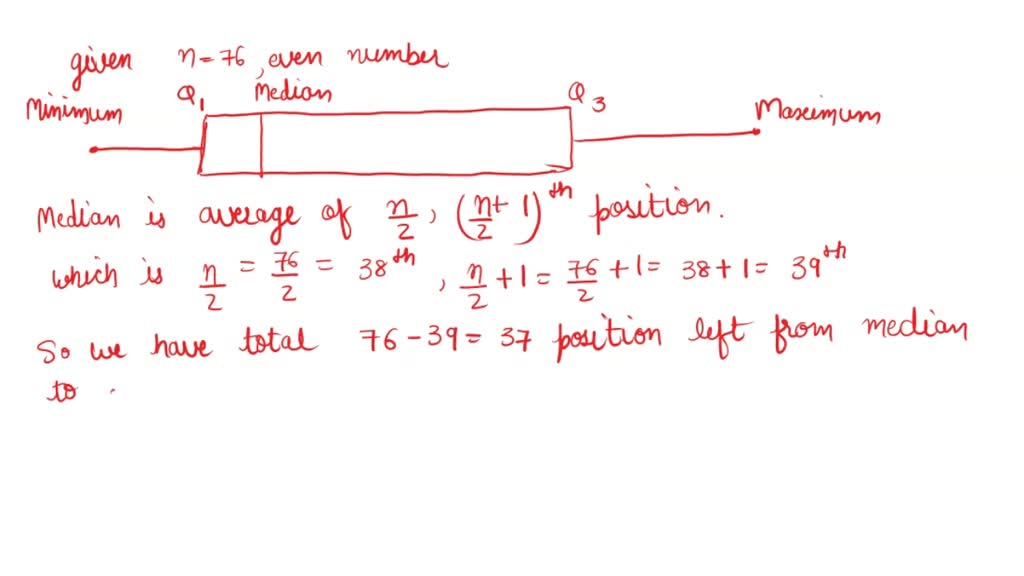 given n = 76, even number
Minimum Q1 Median Q3 Maximum
Median is average of n/2, (n/2 + 1)th position.
which is n/2 = 76/2 = 38th, n/2 + 1 = 76/2 + 1 = 38 + 1 = 39th
So we have total 76 - 39 = 37 position left from median
to